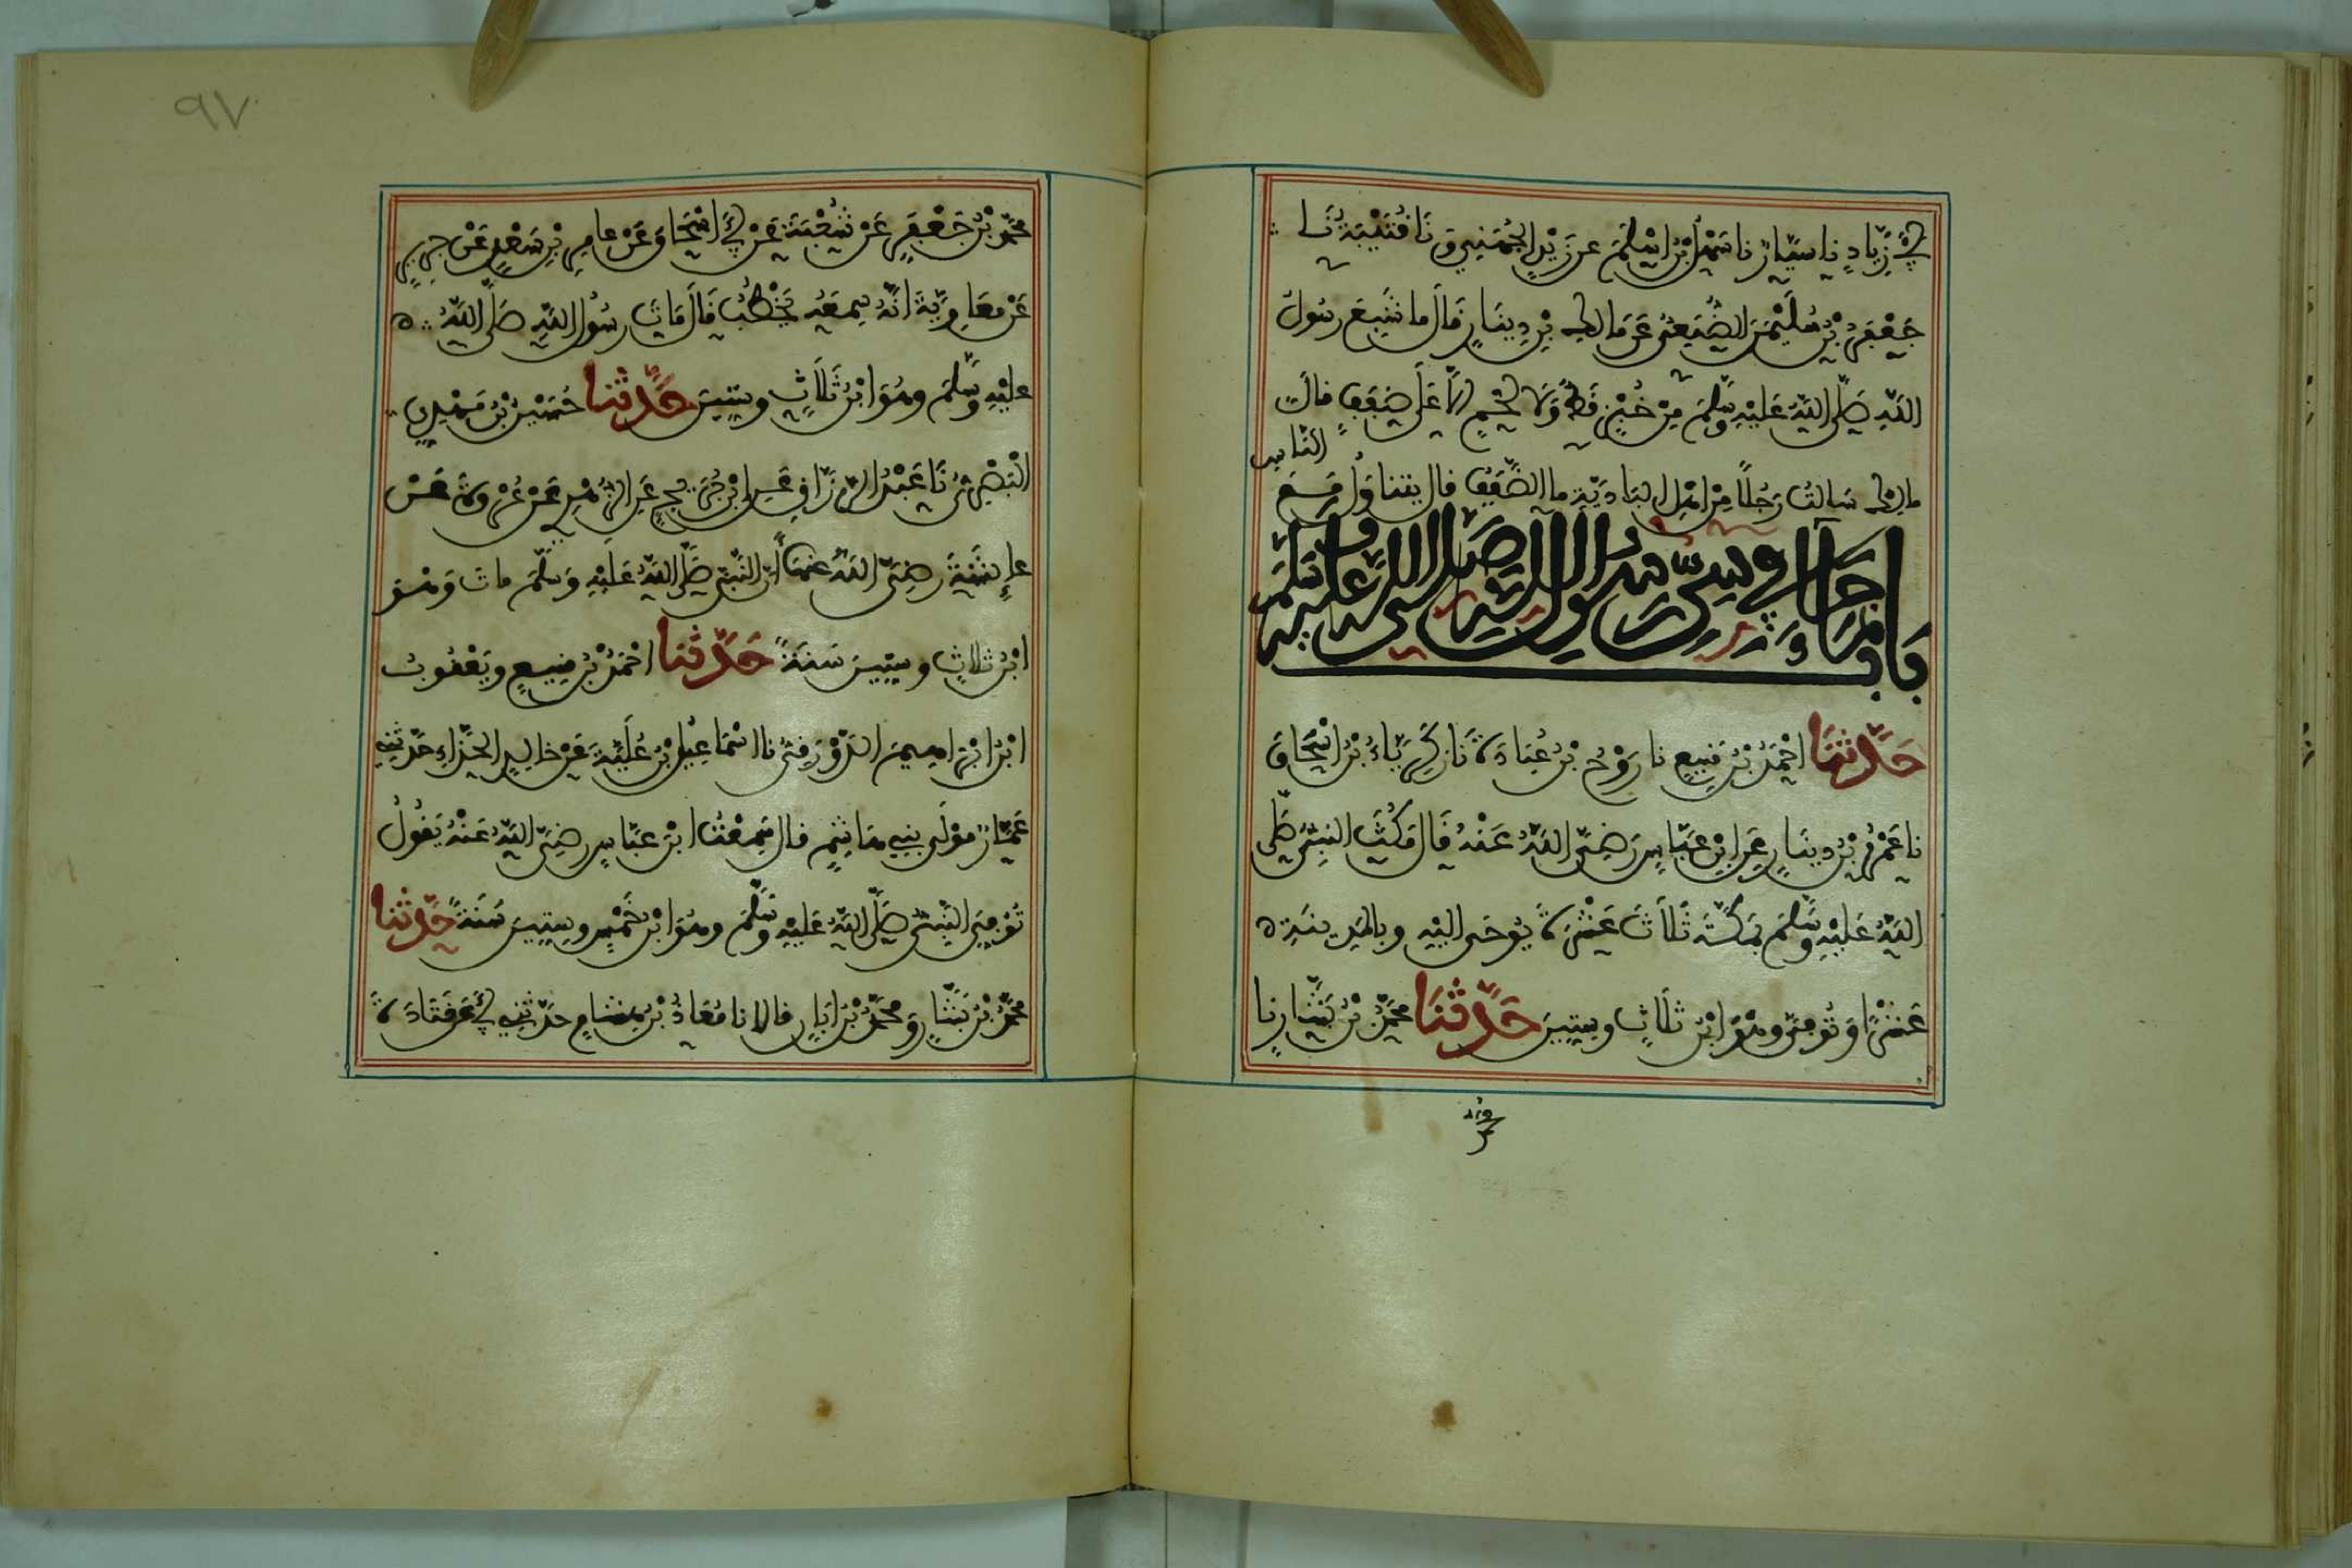 أَبِي زِيَادٍ نا سَيَّارٌ نا سَهْلُ بْنُ أَسْلَمَ عن يَزِيدَ الجُهَنِي ۞ نَا قُتَيْبَةُ نَا
جَعْفَرُ بْنُ سُلَيْمَنَ الضُّبَعِيُّ عَن مَالِك بْنِ دِينَارٍ قَالَ ما شَبِعَ رَسُولُ
اللَّهِ صَلَّى اللَّهُ عَلَيْهِ وَسَلَّمَ مِنْ خُبْزٍ قَطُّ وَلَا لَحْمٍ إِلَّا عَلَى ضَفَفٍ قالَ
مالك سَالتُ رَجُلاً مِنْ اهْلِ البَادِيَةِ ما الضَّفَفُ قال يتناوَلُ مَعَ الناس
بَابُ مَا جَاءَ في سِنِّ رَسُولِ اللَّهِ صَلَّى اللهُ عَلَيْهِ وَسَلَّمَ
حَدَّثَنَا احْمَدُ بْنُ مَنِيعٍ نا رَوْحُ بْنُ عُبَادَةَ نَا زَكَرِيَّاءُ بْنُ اسْحَاقَ
نا عَمْرُو بْنُ دِينَارٍ عَن ابْنِ عَبَّاسٍ رَضِيَ اللَّهُ عَنْهُ قَالَ مَكَثَ النَّبِيُّ صَلَّى
اللَّهُ عَلَيْهِ وَسَلَّمَ بمَكَّةَ ثَلَاثَ عَشْرَةَ يُوحَى إليْهِ وبالمَدِينَةِ
عَشْرًا وَتُوُفِّيَ وهُوَ ابْنُ ثَلَاثٍ وسِتِّينَ حَدَّثَنَا مُحَمَّدُ بْنُ بَشَّارٍ نا
محَمَّدُ بْنُ جَعْفَرٍ عَنْ شُعْبَةَ عَنْ أَبِي اسْحَاقَ عَنْ عامِرِ بْنِ سَعْدٍ عَنْ جَرِيرٍ
عَنْ مُعَاوِيَةَ أَنَّهُ سمعَهُ يَخْطُبُ قَالَ مَاتَ رسُولُ اللَّهِ صَلَّى اللَّهُ
عَلَيْهِ وَسَلَّمَ وهُوَ ابْنُ ثَلَاثٍ وسِتِّينَ حَدَّثنا حُسَيْنُ بْنُ مَهْدِيٍّ
الْبَصْرِيُّ نَا عَبْدُ الرَّزَّاقِ عَنِ ابْنِ جُرَيْجٍ عَنِ الزُّهْرِيِّ عَنْ عُرْوَةَ عَنْ
عائِشَةَ رَضِيَ اللَّهُ عنها أَنَّ النَّبِيَّ صَلَّى اللَّهُ عَلَيْهِ وَسَلَّمَ ماتَ وَهُوَ
ابْنُ ثلاثٍ وسِتِّينَ سَنَةً حَدَّثَنا احْمَدُ بْنُ مَنِيعٍ وَيَعْقُوبُ
ابْنُ ابْرَاهِيمَ الدَّوْرَقِيُّ نا اسْمَاعِيلُ بْنُ عُلَيَّةَ عَنْ خالِدٍ الحَذَّاءِ حَدَّثَنِي
عَمَّارٌ مَوْلَى بَنِي هَاشِمٍ قال سَمِعْتُ ابْنَ عَبَّاسٍ رَضِيَ اللَّهُ عَنْهُ يَقُولُ
تُوُفِّيَ النَّبِيُّ صَلَّى اللَّهُ عَلَيْهِ وَسَلَّمَ وهُوَ ابْنُ خَمْسٍ وسِتِّينَ سَنَةً حَدَّثنا
محَمَّدُ بْنُ بَشَّارٍ وَمحَمَّدُ بْنُ ابَانٍ قالا نا مُعَاذُ بْنُ هِشامٍ حَدَّثَنِي أَبِي عَنْ قَتَادَةَ
٩٧